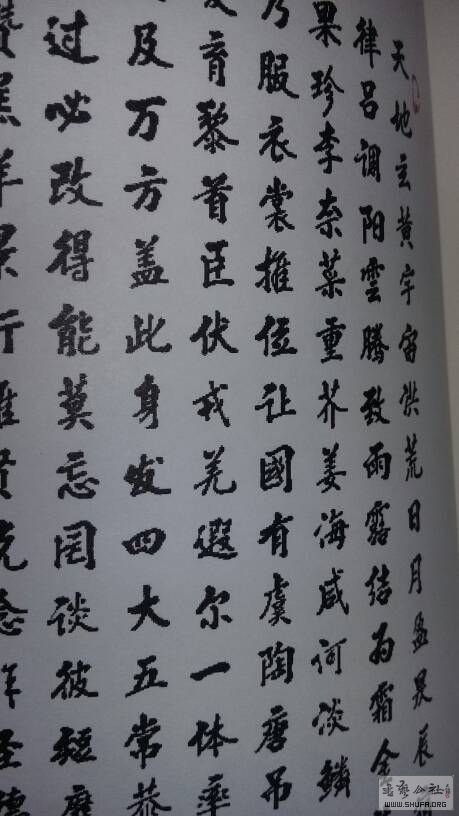 天地玄黄宇宙洪荒日月盈昃辰
律吕调阳雲腾致雨露结为霜金
果珍李奈菜重芥姜海咸河淡鳞
乃服衣裳推位让國有虞陶唐吊
育黎首臣伏戎羌遐尔一体率
及万方盖此身发四大五常恭
过必改得能莫忘罔谈彼短靡
羊景行贤克念圣德
书艺公社
WWW.SHUFA.ORG